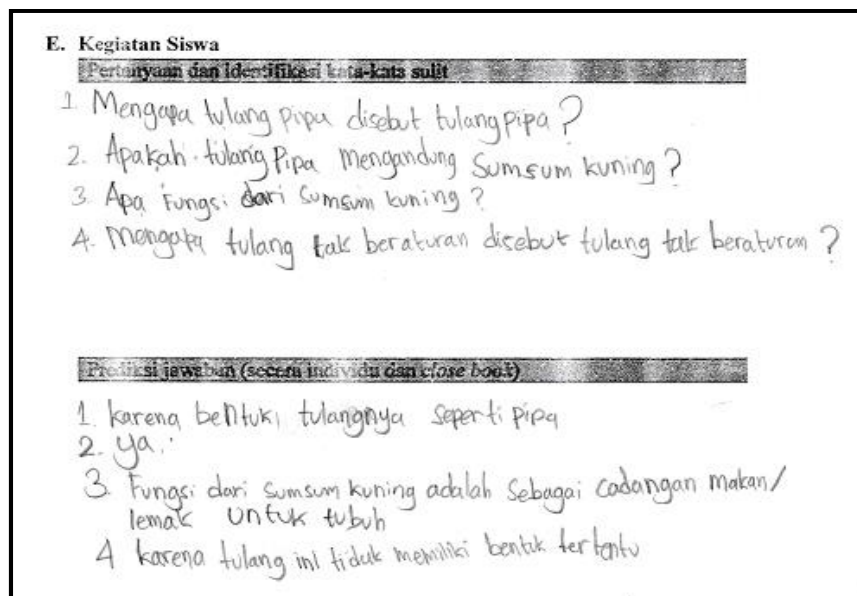 E. Kegiatan Siswa
Pertanyaan dan identifikasi kata-kata sulit
1 Mengapa tulang pipa disebut tulang pipa?
2. Apakah tulang Pipa mengandung Sumsum kuning?
3. Apa Fungsi dari sumsum kuning?
4. Mengapa tulang tak beraturan disebut tulang tak beraturan?
Prediksi jawaban (secara individu dan close book)
1. karena bentuk tulangnya seperti pipa
2. ya.
3. Fungsi dari sumsum kuning adalah sebagai cadangan makan/
lemak untuk tubuh
4 karena tulang ini tidak memiliki bentuk tertentu